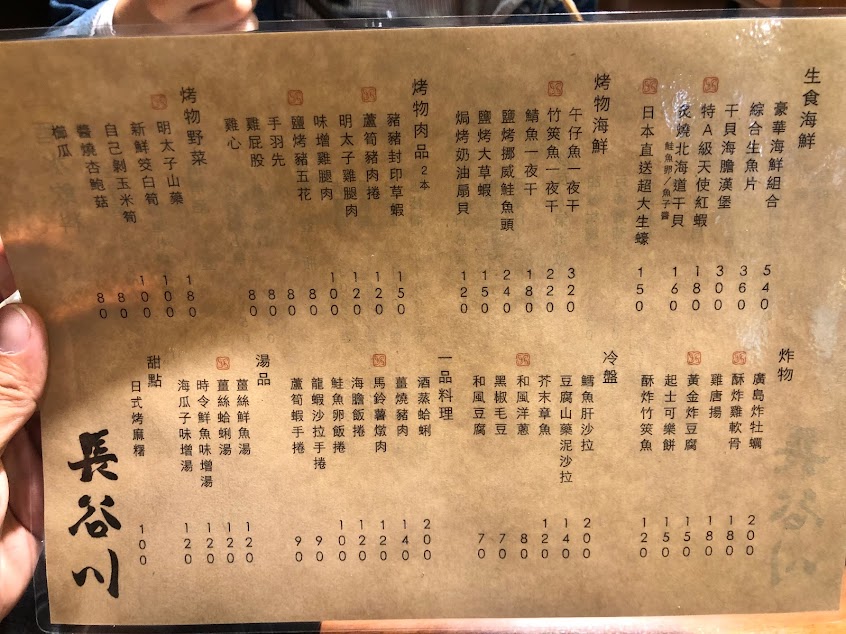 生食海鮮
豪華海鮮組合 540
綜合生魚片 360
干貝海膽漢堡 300
特A級天使紅蝦 180
炙燒北海道干貝 160
鮭魚卵/魚子醬
日本直送超大生蠔 150
烤物海鮮
午仔魚一夜干 320
竹筴魚一夜干 220
鯖魚一夜干 180
鹽烤挪威鮭魚頭 240
鹽烤大草蝦 150
焗烤奶油扇貝 120
烤物肉品 2本
豬豬封印草蝦 150
蘆筍豬肉捲 120
明太子雞腿肉 120
味增雞腿肉 100
鹽烤豬五花 80
手羽先 80
雞屁股 80
雞心 80
烤物野菜
明太子山藥 180
新鮮筊白筍 100
自己剝玉米筍 100
醬燒杏鮑菇 80
櫛瓜 80
炸物
廣島炸牡蠣 200
酥炸雞軟骨 180
雞唐揚 180
黃金炸豆腐 150
起士可樂餅 150
酥炸竹筴魚 120
冷盤
鱈魚肝沙拉 200
豆腐山藥泥沙拉 140
芥末章魚 120
和風洋蔥 80
黑椒毛豆 70
和風豆腐 70
一品料理
酒蒸蛤蜊 200
薑燒豬肉 140
馬鈴薯燉肉 120
海膽飯捲 120
鮭魚卵飯捲 100
龍蝦沙拉手捲 90
蘆筍蝦手捲 90
湯品
薑絲鮮魚湯 120
薑絲蛤蜊湯 120
時令鮮魚味增湯 120
海瓜子味增湯 120
甜點
日式烤麻糬 100
長谷川